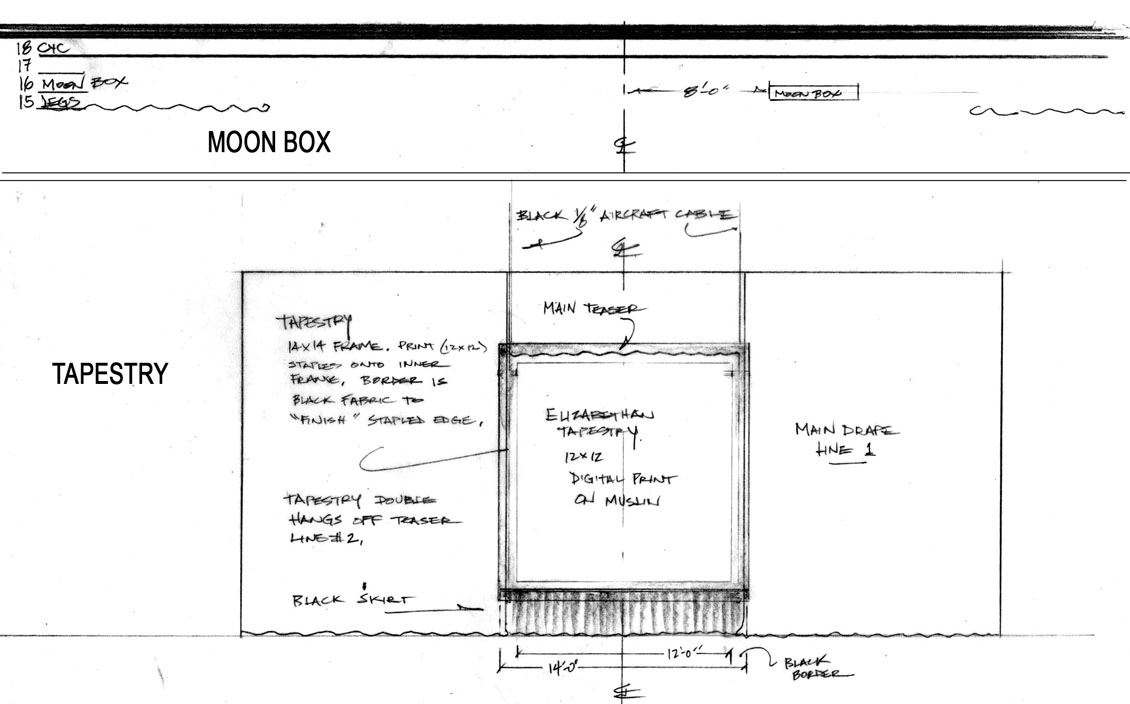 18 CYC
17
16 MOON BOX
15 LEGS
8'-0"
MOON BOX
MOON BOX
℄
BLACK 1/8" AIRCRAFT CABLE
℄
MAIN TEASER
TAPESTRY
14X14 FRAME. PRINT (12X12)
STAPLES ONTO INNER
FRAME, BORDER IS
BLACK FABRIC TO
"FINISH" STAPLED EDGE.
TAPESTRY
ELIZABETHAN
TAPESTRY.
12X12
DIGITAL PRINT
ON MUSLIN
MAIN DRAPE
LINE 1
TAPESTRY DOUBLE
HANGS OFF TEASER
LINE #2.
BLACK SKIRT
12'-0"
14'-0"
BLACK
BORDER
℄